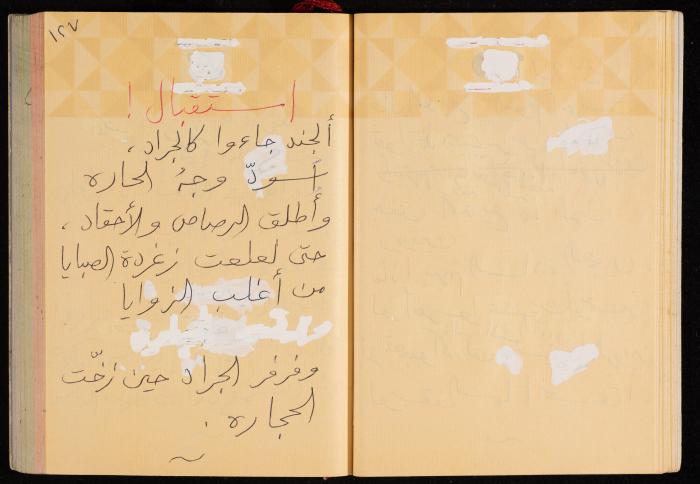 ١٢٧
استقبال !
ألجند جاءوا كالجراد،
أسودّ وجهُ الحاره
وأطلق الرصاص والأحقاد،
حتى لعلعت زغردة الصبايا
من أغلب الزوايا
وفرفر الجراد حين زخّت
الحجاره .